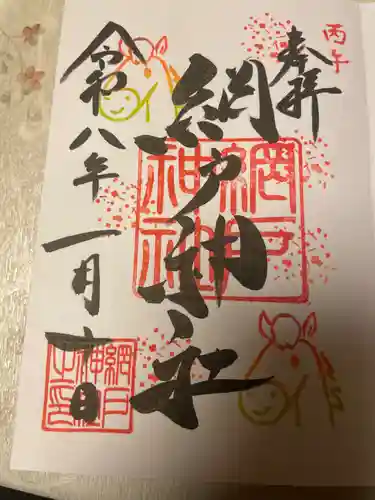 丙午
奉拝
網戸神社
網戸神社
令和八年
一月六日
網戸
神社
之印